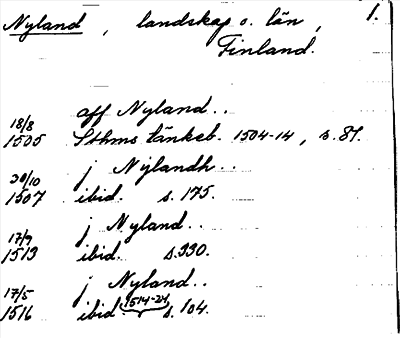 Nyland, landskap o. län, 1.
Finland.
aff Nyland..
18/8 1505 Sthms tänkeb. 1504-14, s. 87.
j Nÿlandh..
30/10 1507 ibid. s. 175.
j Nyland..
17/9 1513 ibid. s. 330.
j Nyland..
17/5 1516 ibid. 1514-21 s. 104.